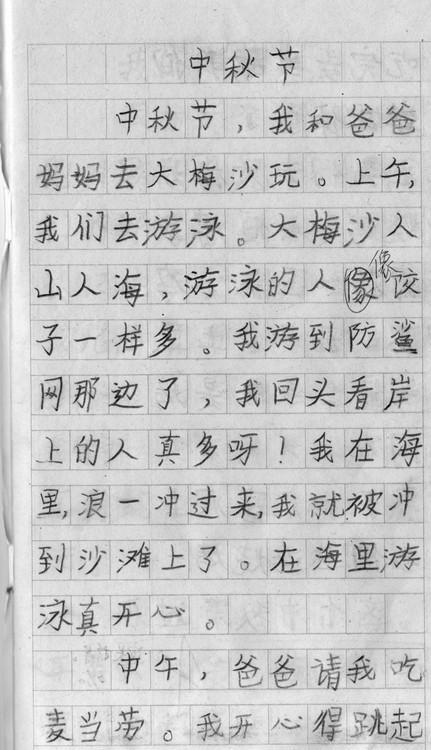 中秋节
中秋节，我和爸爸
妈妈去大梅沙玩。上午，
我们去游泳。大梅沙人
山人海，游泳的人像饺
子一样多。我游到防鲨
网那边了，我回头看岸
上的人真多呀！我在海
里，浪一冲过来，我就被冲
到沙滩上了。在海里游
泳真开心。
中午，爸爸请我吃
麦当劳。我开心得跳起